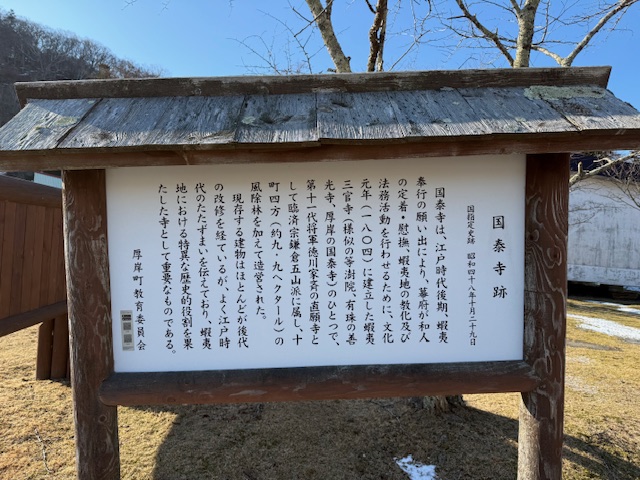 国泰寺跡
国指定史跡 昭和四十八年十月二十九日
国泰寺は、江戸時代後期、蝦夷
奉行の願い出により、幕府が和人
の定着・慰撫、蝦夷地の教化及び
法務活動を行わせるために、文化
元年(一八〇四)に建立した蝦夷
三官寺(様似の等澍院、有珠の善
光寺、厚岸の国泰寺)のひとつで、
第十一代将軍徳川家斉の直願寺と
して臨済宗鎌倉五山派に属し、十
町四方(約九・九ヘクタール)の
風除林を加えて造営された。
現存する建物はほとんどが後代
の改修を経ているが、よく江戸時
代のたたずまいを伝えており、蝦夷
地における特異な歴史的役割を果
たした寺として重要なものである。
厚岸町教育委員会